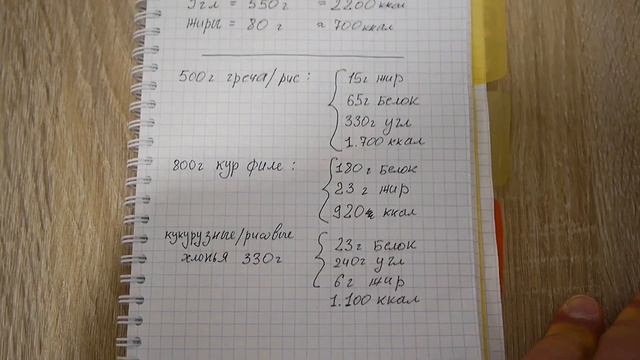 Угл = 550г = 2200 ккал
Жиры = 80 г ≈ 700 ккал
500г греча/рис : 15г жир
65г Белок
330г угл
1.700 ккал
800г кур филе : 180г Белок
23г жир
920 ккал
кукурузные/рисовые
хлопья 330г
23г Белок
240г угл
6г жир
1.100 ккал